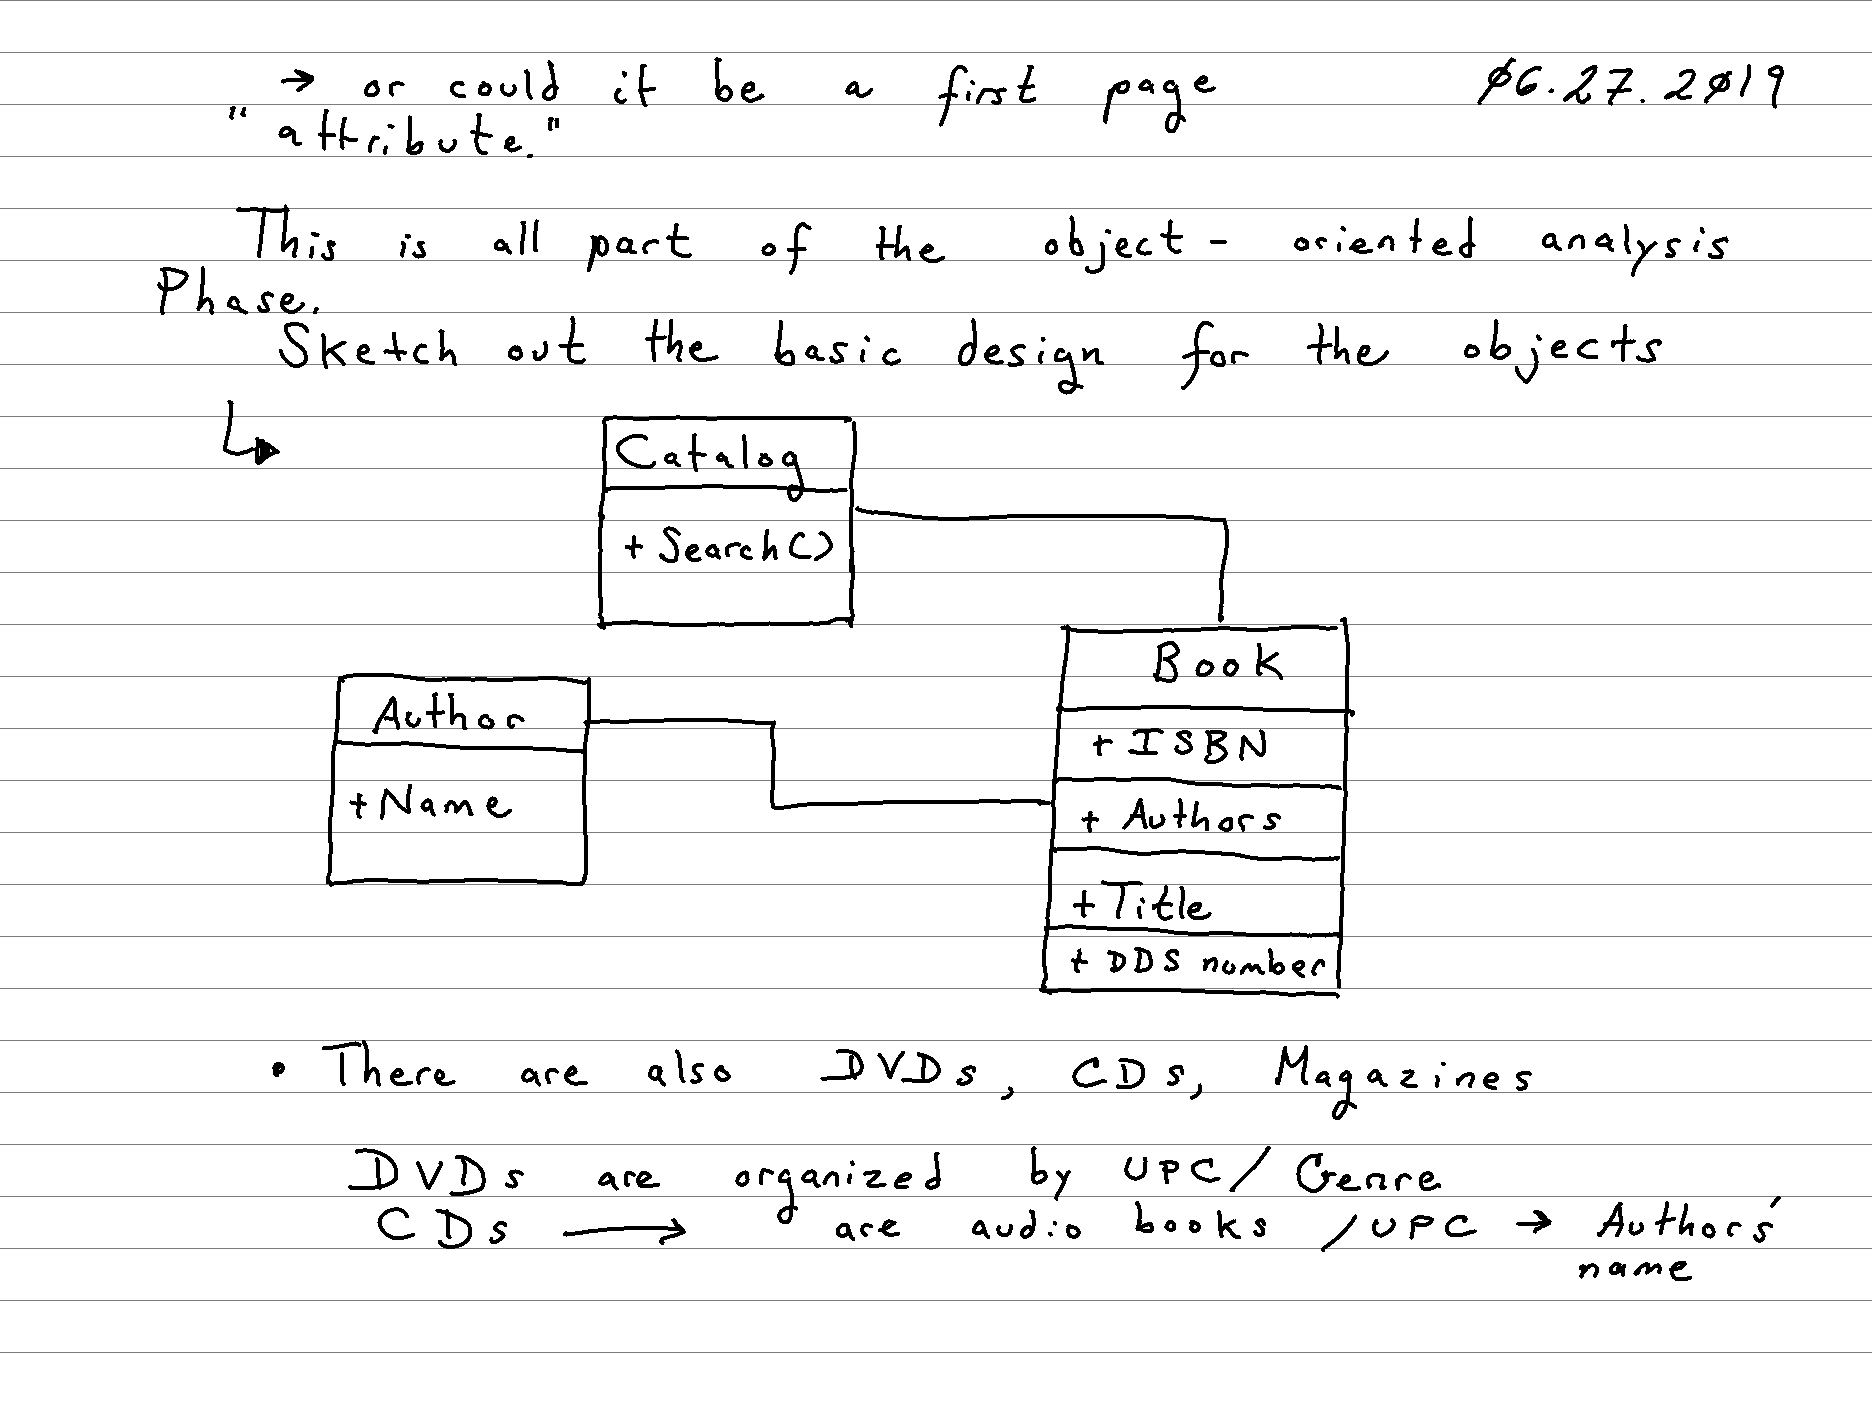 → or could it be a first page 06.27.2019
"attribute."
This is all part of the object-oriented analysis
Phase.
Sketch out the basic design for the objects
Catalog
+ Search()
Book
+ ISBN
+ Authors
+ Title
+ DDS number
Author
+ Name
• There are also DVDs, CDs, Magazines
DVDs are organized by UPC/Genre
CDs → are audio books /UPC → Authors'
name